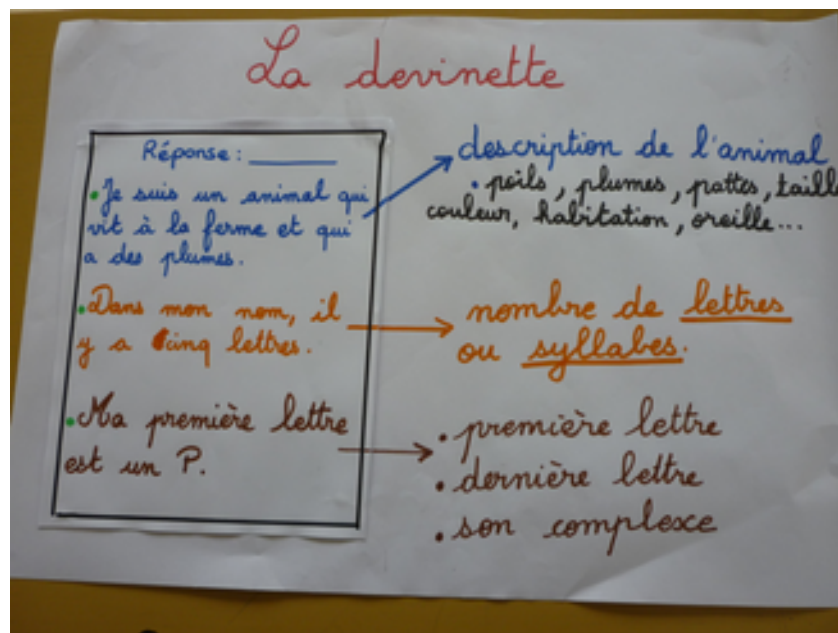 La devinette
Réponse : ______
• Je suis un animal qui
vit à la ferme et qui
a des plumes.
• Dans mon nom, il
y a cinq lettres.
• Ma première lettre
est un P.
description de l'animal
• poils, plumes, pattes, taille
couleur, habitation, oreille...
nombre de lettres
ou syllabes.
• première lettre
• dernière lettre
• son complexe